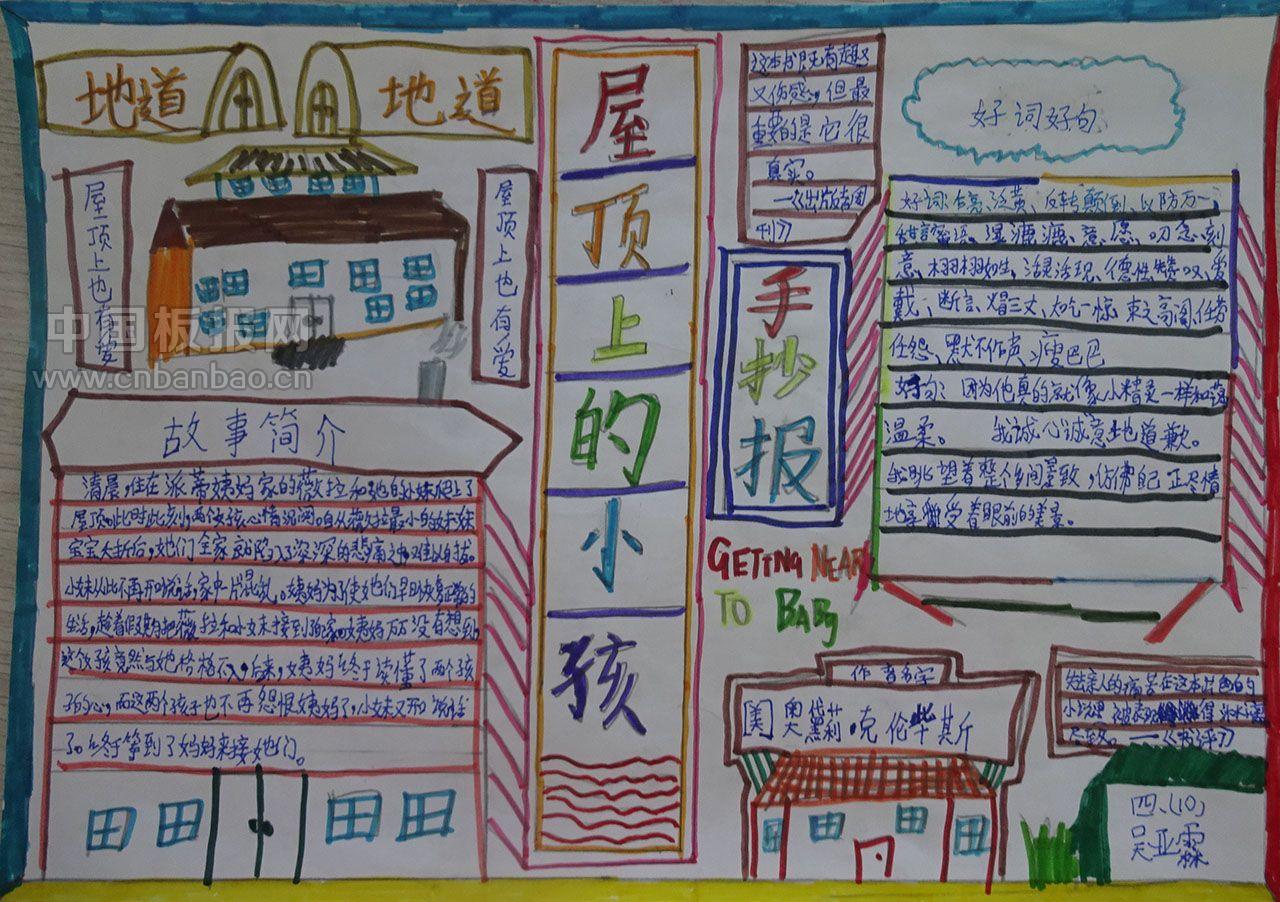 地道
地道
屋顶上也有爱
屋顶上也有爱
中国板报网
www.cnbanbao.cn
故事简介
清晨,住在派蒂姨妈家的薇拉和她的小妹爬上了
屋顶。此时此刻,两个女孩心情沉闷。自从薇拉最小的妹妹
宝宝夭折后,她们全家就陷入了深深的悲痛之中难以自拔。
小妹从此不再开口说话,家中一片混乱。姨妈为了使她们早日恢复正常的
生活,趁着假期把薇拉和小妹接到她家。姨妈万万没有想到,
这饮孩竟然与她格格不入,后来,姨妈终于读懂了两个孩
子的心,而这两个孩子也不再怨恨姨妈了,小妹又开口说话
了。终于等到了妈妈来接她们。
屋顶上的小孩
这本书既有趣又
又伤感,但最
重要的是它很
真实。
—《出版者周
刊》
手抄报
GETTING NEAR
TO BABY
好词好句
好词:台亮、泛黄、反转颠倒、以防万一、
甜言蜜语、湿漉漉、意愿、叨念、刻
意、栩栩如生、活灵活现、德性、赞叹、爱
戴、断言、火冒三丈、大吃一惊、束之高阁、任劳
任怨、默不作声、瘦巴巴
好句:因为他真的就像小精灵一样和蔼
温柔。 我诚心诚意地道歉。
我眺望着整个乡间景致,仿佛自己正尽情
地享受着眼前的美景。
作者名字
[美]奥黛莉·克伦毕斯
失去亲人的痛苦在这本出色的
小说里被表现得淋漓
尽致。—《书评》
四、(10)
吴亚霖